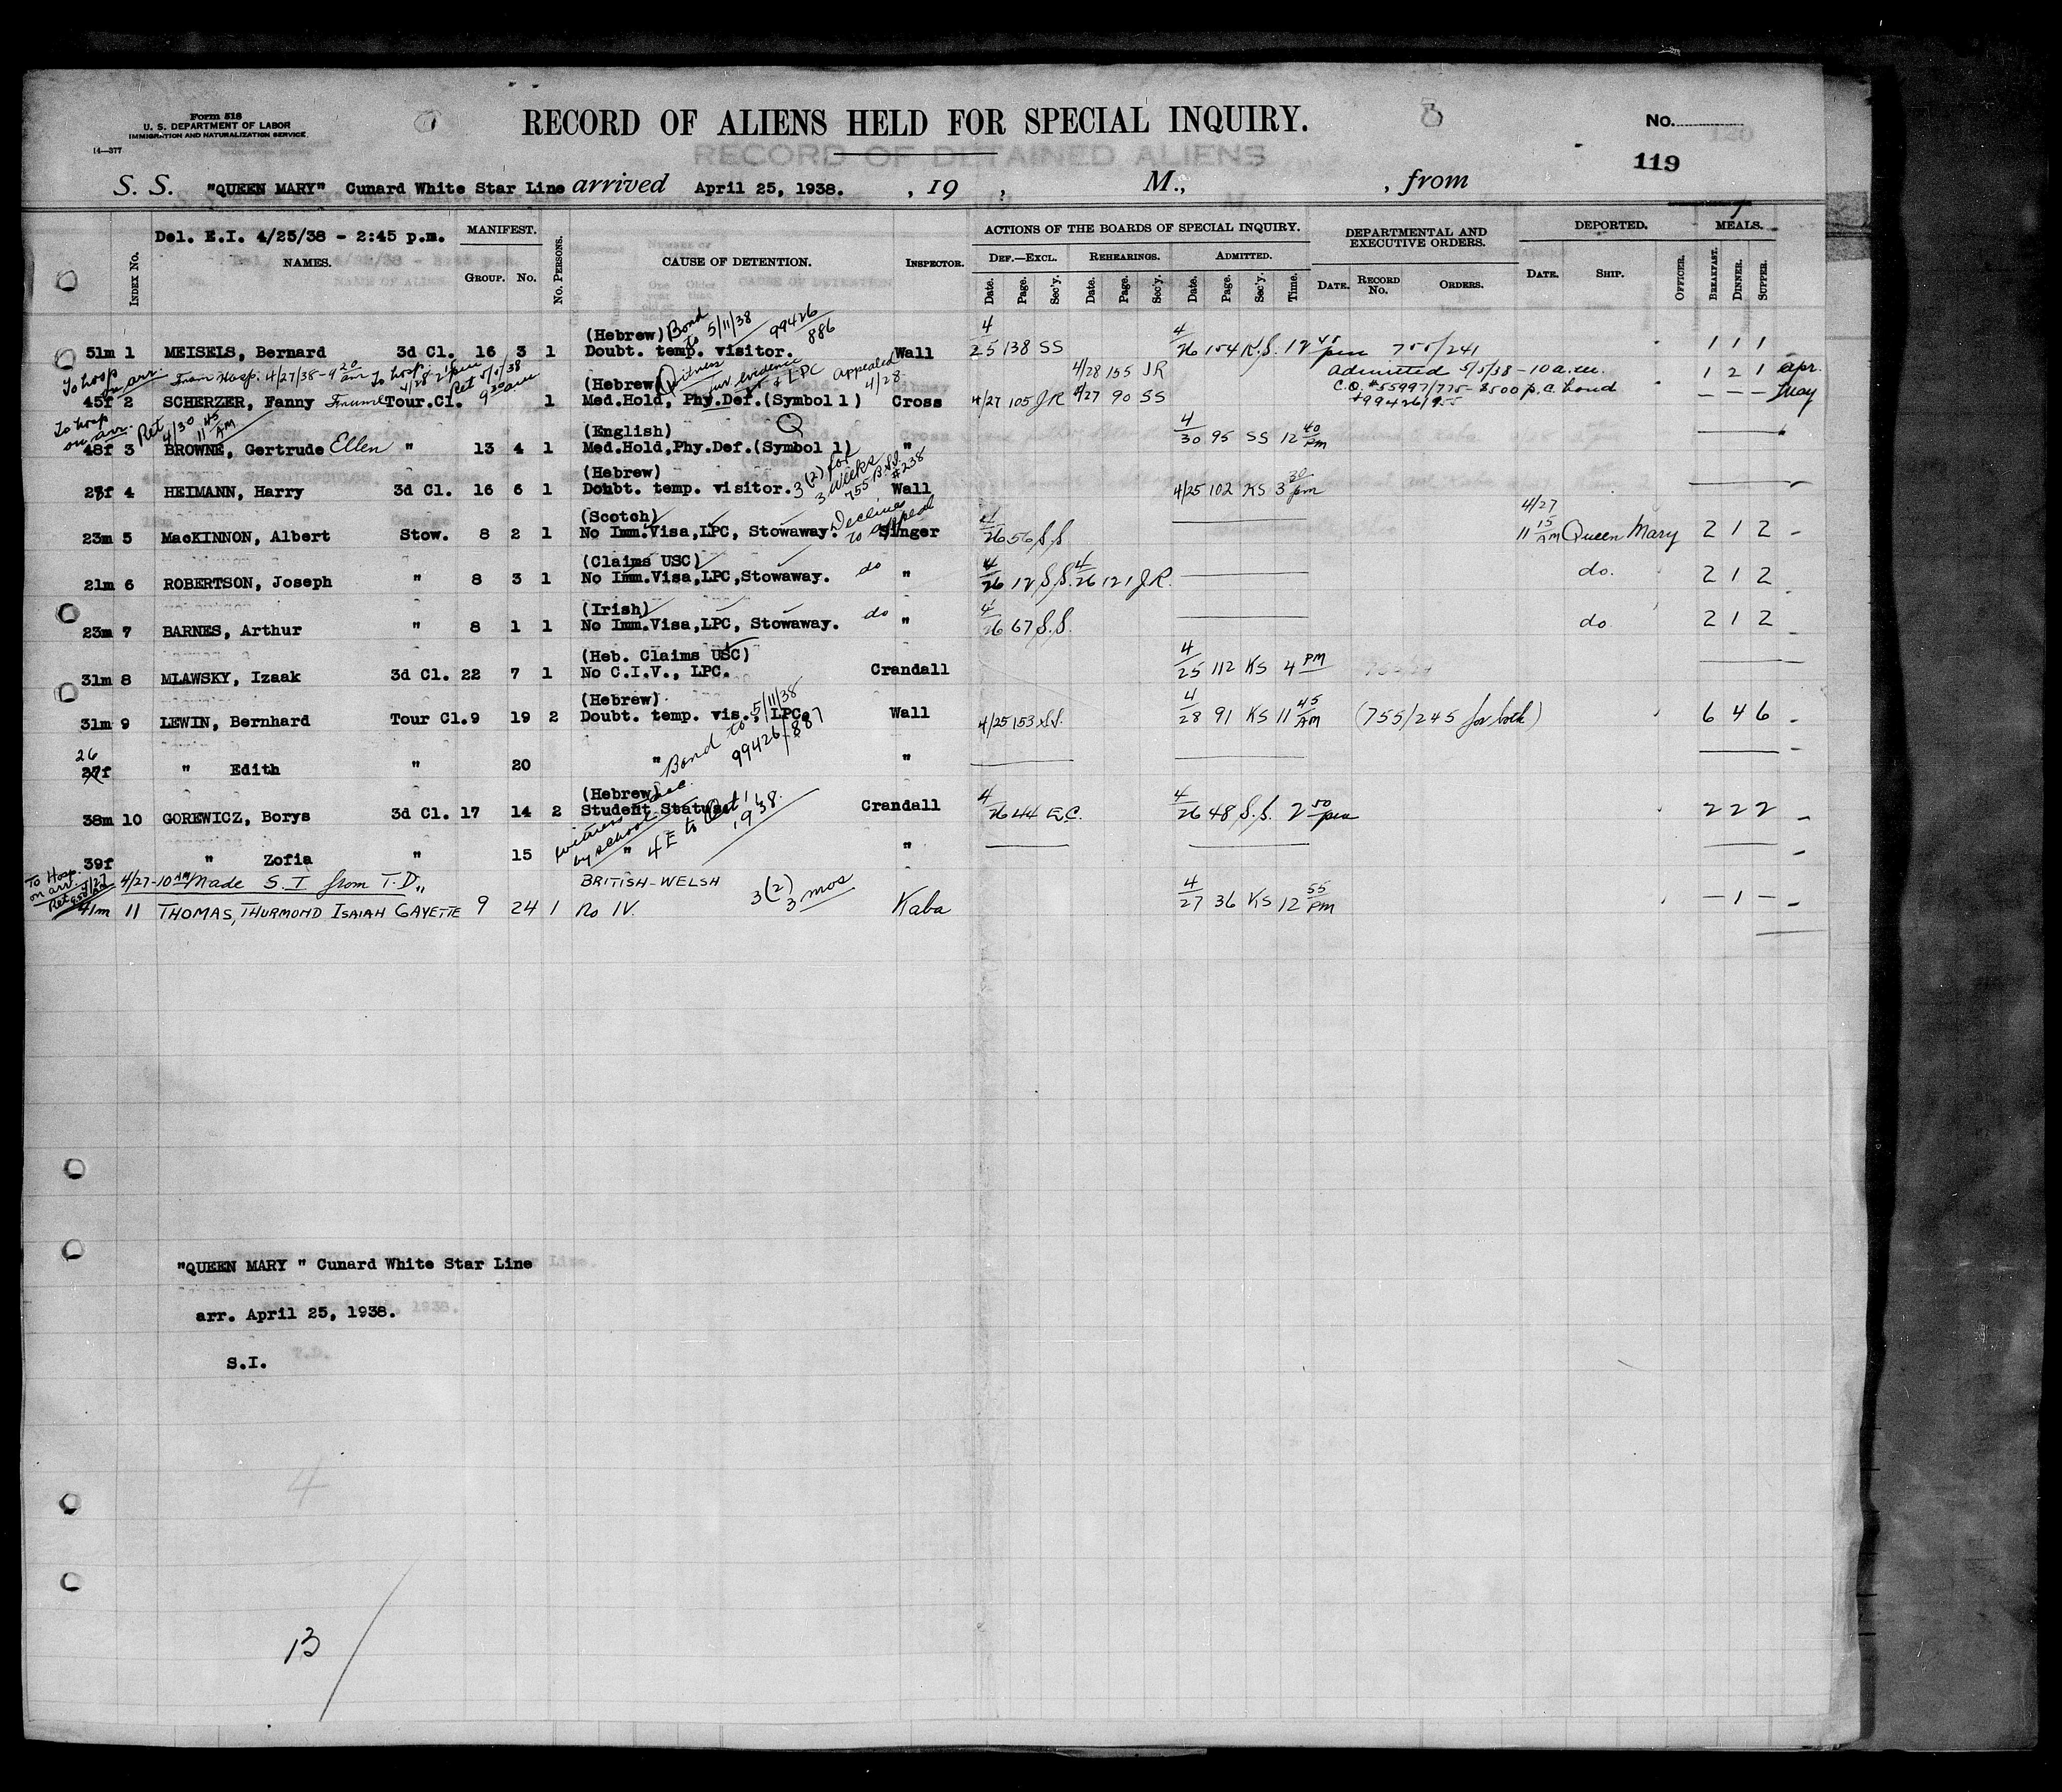 Form 518
U. S. DEPARTMENT OF LABOR
IMMIGRATION AND NATURALIZATION SERVICE
14—377
RECORD OF ALIENS HELD FOR SPECIAL INQUIRY.
RECORD OF DETAINED ALIENS
No.
119
S. S. "QUEEN MARY" Cunard White Star Line arrived April 25, 1938. , 19 , M., , from
Del. E.I. 4/25/38 - 2:45 p.m.
INDEX No. NAMES. MANIFEST. GROUP. No. No. PERSONS. CAUSE OF DETENTION. INSPECTOR.
ACTIONS OF THE BOARDS OF SPECIAL INQUIRY. DEF.—EXCL. REHEARINGS. ADMITTED.
Date. Page. Sec'y. Date. Page. Sec'y. Date. Page. Sec'y. Time.
DEPARTMENTAL AND EXECUTIVE ORDERS. DATE. RECORD No. ORDERS.
DEPORTED. DATE. SHIP. OFFICER. MEALS. BREAKFAST. DINNER. SUPPER.
(Hebrew) Bond to 5/11/38 99426/886
51m 1 MEISELS, Bernard 3d Cl. 16 3 1 Doubt. temp. visitor. Wall 4/25 138 SS 4/26 154 K.S. 12 45 pm 755/241 1 1 1
To hosp on arr. From Hosp. 4/27/38 - 9 20 am To hosp 4/28 2 15 pm Ret 5/5/38 9 30 am
(Hebrew) Witness LPC Appealed 4/28 4/28 155 JR Admitted 5/5/38 - 10 a.m. 1 2 1 Apr.
45f 2 SCHERZER, Fanny Tour.Cl. 1 Med.Hold, Phy.Def.(Symbol 1) Cross 4/27 105 JR 4/27 90 SS C.O. #55997/775 - $500 p.c. bond #99426/955 — — — May
To hosp on arr. Ret 4/30 11 45 AM
(English)
48f 3 BROWNE, Gertrude Ellen " 13 4 1 Med.Hold,Phy.Def.(Symbol 1) " 4/30 95 SS 12 40 PM
(Hebrew) 3(2) for 3 Weeks 755 B.S.I. #238
28f 4 HEIMANN, Harry 3d Cl. 16 6 1 Doubt. temp. visitor. Wall 4/25 102 KS 3 30 pm
(Scotch) Declines to appeal
23m 5 MacKINNON, Albert Stow. 8 2 1 No Imm.Visa,LPC, Stowaway. Singer 4/26 56 S.S. 4/27 11 15 AM Queen Mary 2 1 2
(Claims USC)
21m 6 ROBERTSON, Joseph " 8 3 1 No Imm.Visa,LPC,Stowaway. do " 4/26 12 S.S. 4/26 121 J.R. do. 2 1 2
(Irish)
23m 7 BARNES, Arthur " 8 1 1 No Imm.Visa,LPC, Stowaway. do " 4/26 67 S.S. do 2 1 2
(Heb. Claims USC)
31m 8 MLAWSKY, Izaak 3d Cl. 22 7 1 No C.I.V., LPC. Crandall 4/25 112 KS 4 PM
(Hebrew)
31m 9 LEWIN, Bernhard Tour Cl. 9 19 2 Doubt. temp. vis., LPC. Wall 4/25 153 SS. 4/28 91 KS 11 45 AM (755/245 for both) 6 4 6
Bond to 5/11/38 99426/887
26
27f " Edith " 20 " "
(Hebrew)
38m 10 GOREWICZ, Borys 3d Cl. 17 14 2 Student Status Crandall 4/26 44 E.C. 4/26 48 S.S. 2 50 pm 2 2 2
witness by school 4E to Oct 1, 1938.
39f " Zofia " 15 " "
To Hosp. on arr. 4/27-10 AM Made S.I from T.D.,
BRITISH-WELSH 3(2) 3 mos
41m 11 THOMAS, THURMOND ISAIAH GAYETTE 9 24 1 No IV. Kaba 4/27 36 KS 12 55 PM — 1 —
"QUEEN MARY " Cunard White Star Line
arr. April 25, 1938.
S.I.
T.D.
4
13